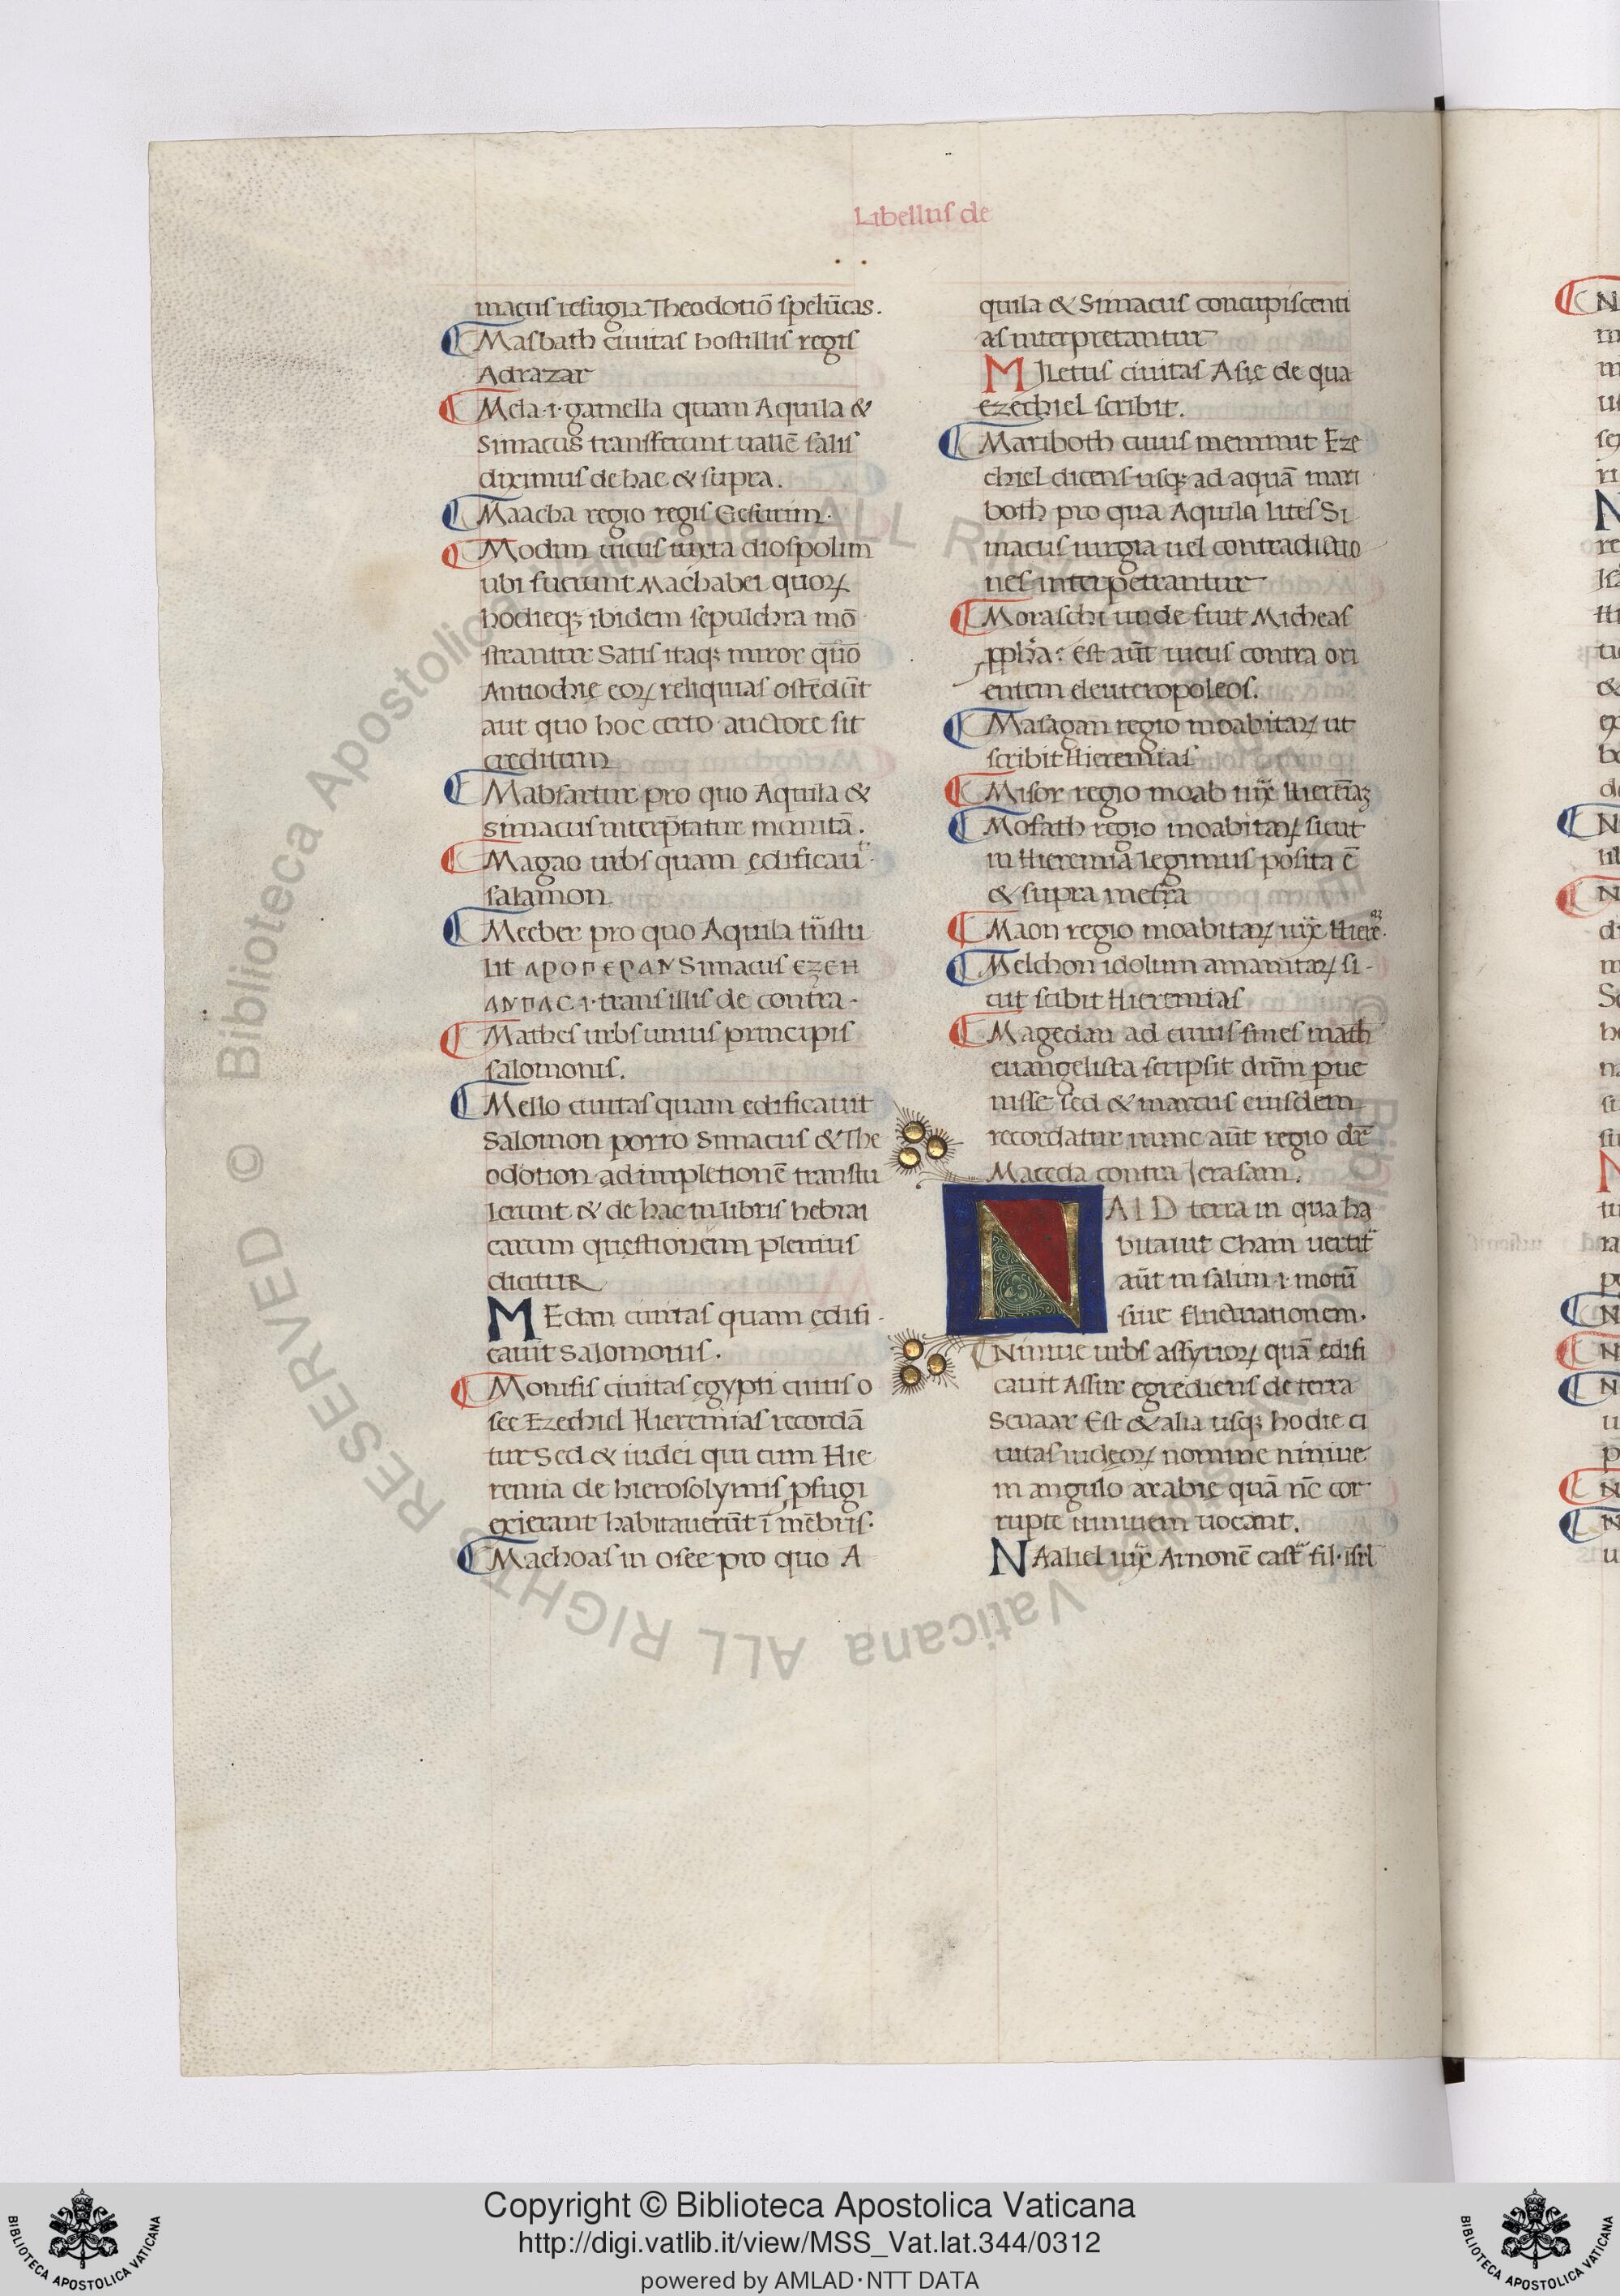 Libellus de
macus refugia Theodotiō spelūcas.
Masbath ciuitas hostillis regis
Adrazar
Mela ·i· gamella quam Aquila &
Simacus transferunt uallē salis
diximus de hac & supra.
Maacha regio regis Gesurim·
Modim uicus iuxta diospolim
ubi fuerunt Machabei quoꝝ
hodieqꝫ ibidem sepulchra mō
strantur Satis itaqꝫ miror quō
Antiochię eoꝝ reliquias ostēdūt
aut quo hoc certo auctore sit
creditum
Mabsartur pro quo Aquila &
simacus interp̄tatur munitā.
Magao urbs quam edificauiͭ·
salamon
Meeber pro quo Aquila tⁿstu
lit
Simacus
·i· trans illis de contra·
Mathes urbs unius principis
salomonis.
Mello ciuitas quam edificauit
Salomon porro Simacus & The
odotion ad impletionē transtu
lerunt & de hac in libris hebrai
carum questionem plenius
dicitur
MEdan ciuitas quam edifi·
cauit Salomonis·
Momfis ciuitas egypti cuius o
see Ezechiel Hieremias recordā
tur Sed & iudei qui cum Hie
remia de hierosolymis ꝓfugi
exierant habitauerūt ī mēbris·
Machoas in osee pro quo A
quila & Simacus concupiscenti
as interpretantur
MIletus ciuitas Asię de qua
ezechiel scribit.
Mariboth cuius meminit Eze
chiel dicens usqꝫ ad aquā mari
both pro qua Aquila lites Si
macus iurgia uel contradictio
nes interpetrantur
Moraschi unde fuit Micheas
ꝓph̄a: Est aūt uicus contra ori
entem eleuteropoleos.
Masagan regio moabitaꝝ ut
scribit Hieremias
Misor regio moab iuẋ Hierem̄iaꝫ
Mofath regio moabitaꝝ sicut
in Hieremia legimus posita ē
& supra mefra
Maon regio moabitaꝝ iuẋ Hiereᵃꝫ·
Melchon idolum amanitaꝝ si-
cut scibit Hieremias
Magedan ad cuius fines math
euangelista scripsit dn̄m pue
nisse sed & marcus eiusdem
recordatur nunc aūt regio dr̄
Maceda contra Jerasam.
NAID terra in qua ha
bitauit Cham uertitᷣ
aūt in salim ·i· motū
siue fluctuationem·
Niniue urbs assyrioꝝ quā edifi
cauit Assur egrediens de terra
Senaar Est & alia usqꝫ hodie ci
uitas iudeoꝝ nomine niniue
in angulo arabię quā nc̄ cor
rupte niniuem uocant.
NAaliel iuẋ Arnonē castͬ fil· isrl̄
© Biblioteca Apostolica Vaticana ALL RIGHTS RESERVED
Copyright © Biblioteca Apostolica Vaticana
http://digi.vatlib.it/view/MSS_Vat.lat.344/0312
powered by AMLAD·NTT DATA
BIBLIOTECA APOSTOLICA VATICANA
BIBLIOTECA APOSTOLICA VATICANA